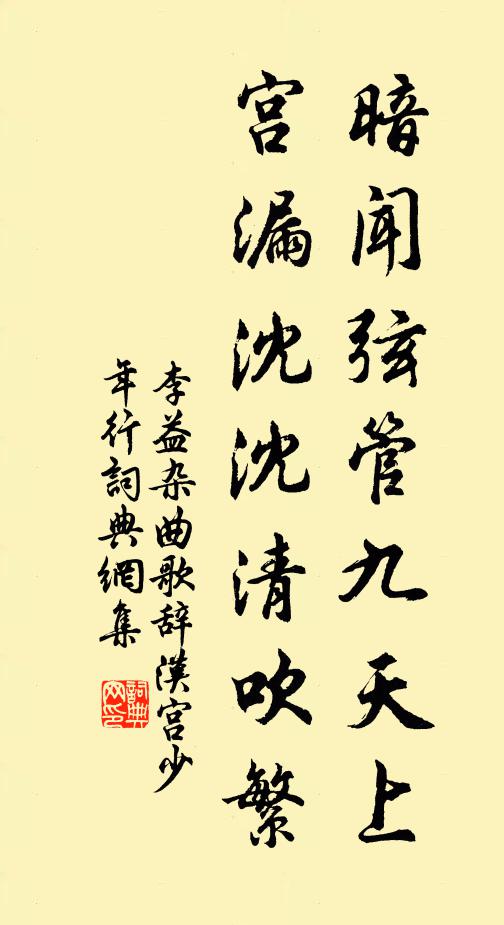 暗闻弦管九天上
宫漏沈沈清吹繁
李益杂曲歌辞漢宫少
年行詞典網集
詞典网印